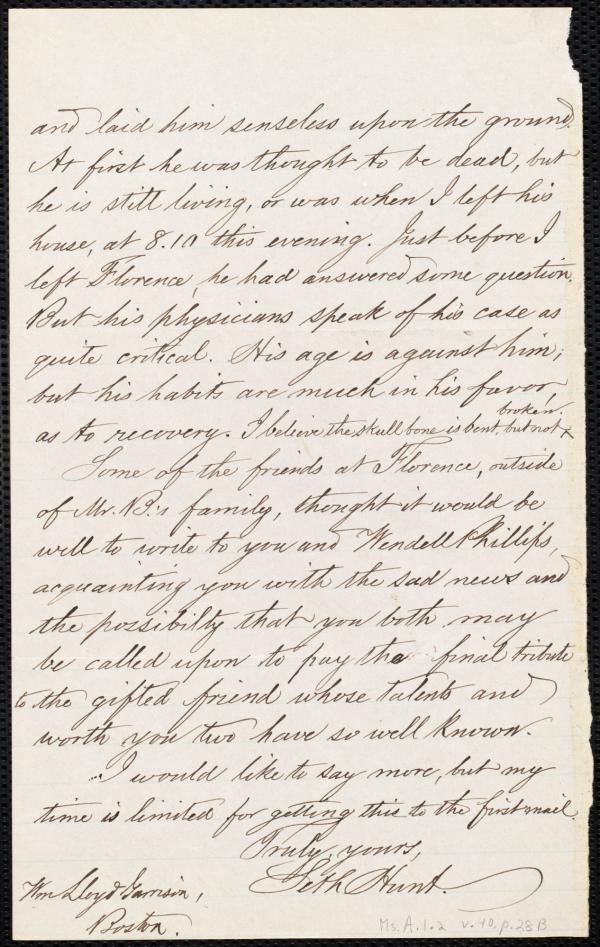 and laid him senseless upon the ground.
At first he was thought to be dead, but
he is still living, or was when I left his
house, at 8.10 this evening. Just before I
left Florence, he had answered some question.
But his physicians speak of his case as
quite critical. His age is against him;
but his habits are much in his favor,
as to recovery. I believe the skull bone is bent, but not broken. x
Some of the friends at Florence, outside
of Mr. B.'s family, thought it would be
well to write to you and Wendell Phillips,
acquainting you with the sad news and
the possibilty that you both may
be called upon to pay the final tribute
to the gifted friend whose talents and
worth you two have so well known.
I would like to say more, but my
time is limited for getting this to the first mail.
Truly yours,
Seth Hunt.
Wm Lloyd Garrison,
Boston.
Ms. A.1.2 v.40, p.28B